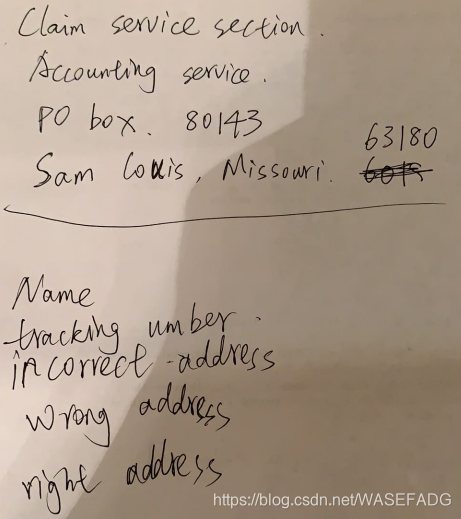 Claim service section.
Accounting service.
PO box. 80143
63180
Sam Louis, Missouri.
Name
tracking umber.
incorrect address
wrong address
right address
https://blog.csdn.net/WASEFADG